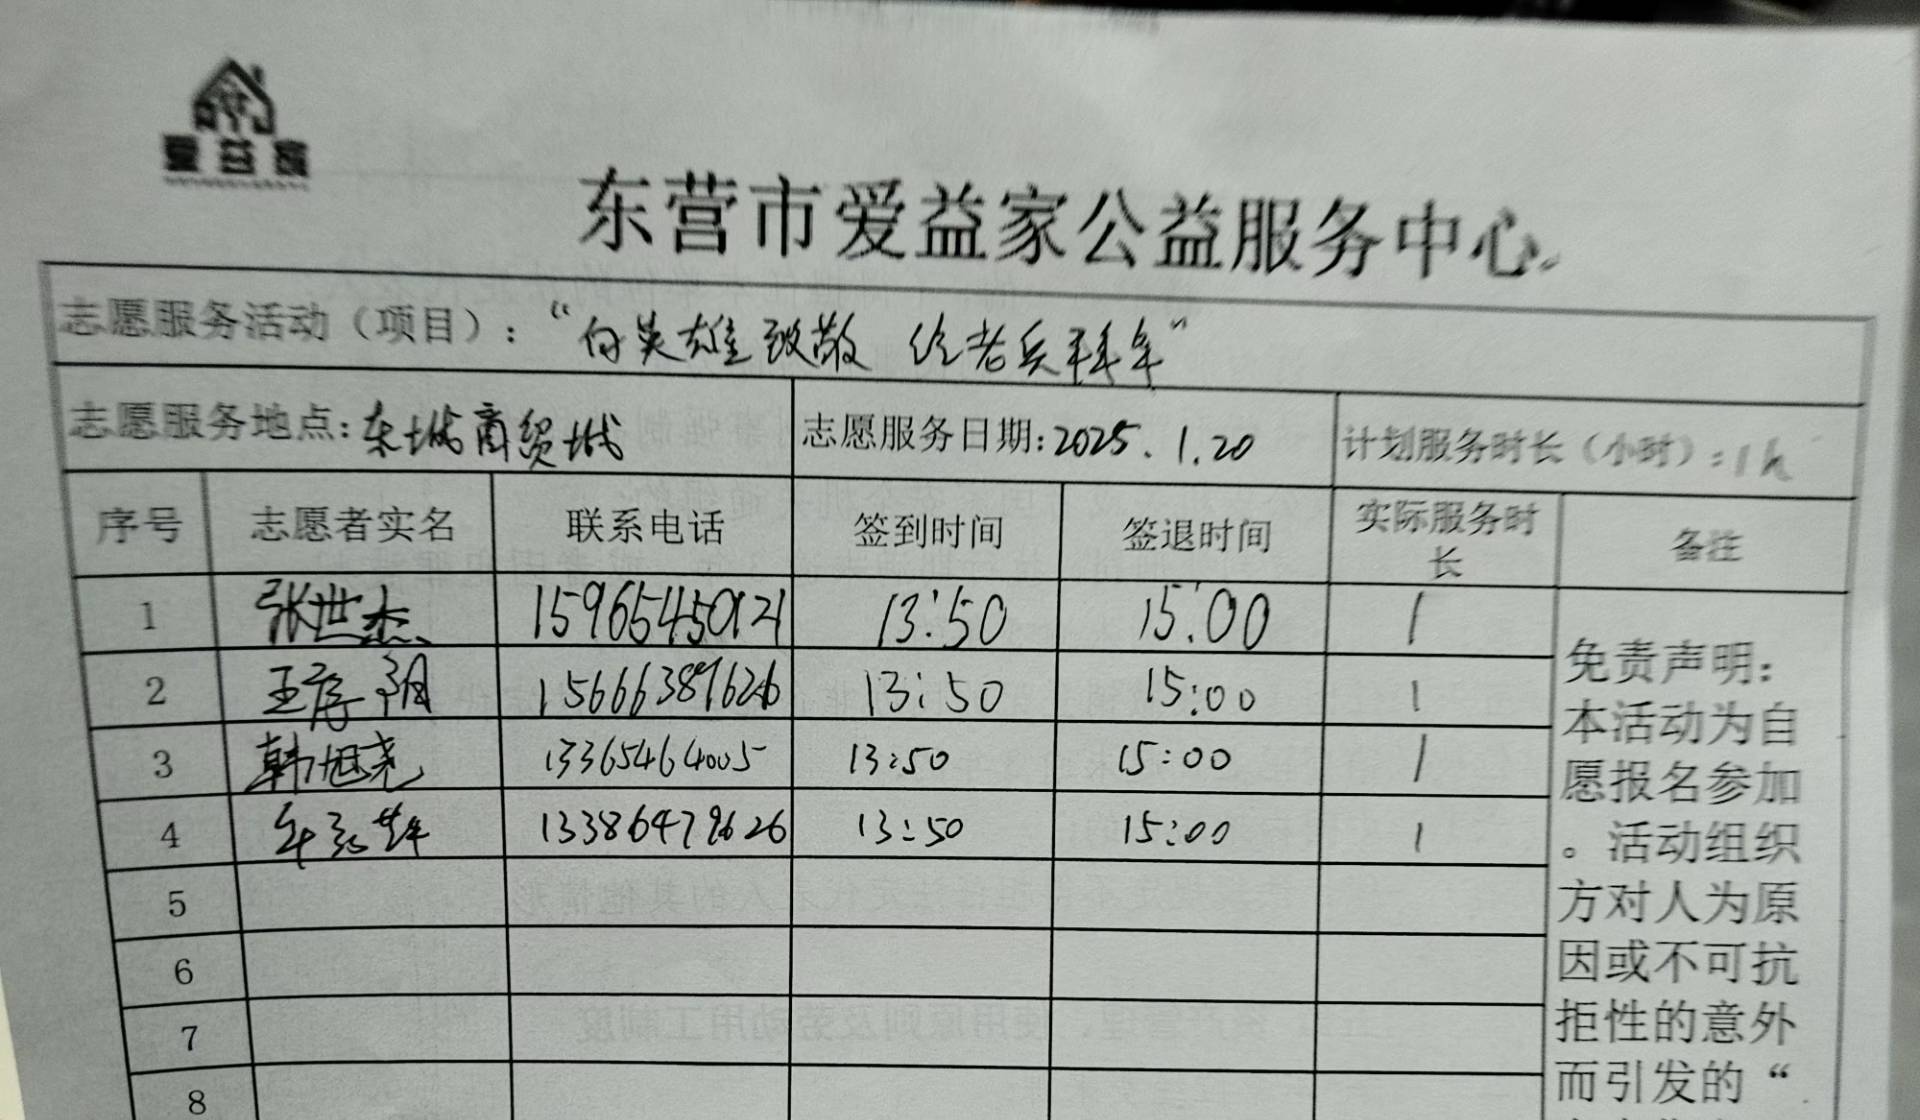 爱益家
东营市爱益家公益服务中心
志愿服务活动（项目）：“向英雄致敬 给老兵拜年”
志愿服务地点：东城商贸城 志愿服务日期：2025.1.20 计划服务时长（小时）：1h
序号 志愿者实名 联系电话 签到时间 签退时间 实际服务时长 备注
1 张世杰 15965450121 13:50 15:00 1
2 王序阳 15666389626 13:50 15:00 1
3 韩旭尧 13365464005 13:50 15:00 1
4 13386479626 13:50 15:00 1
5
6
7
8
免责声明：
本活动为自
愿报名参加
。活动组织
方对人为原
因或不可抗
拒性的意外
而引发的“